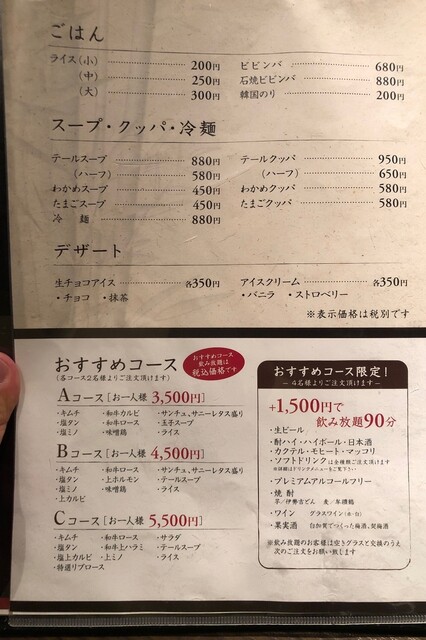 ごはん
ライス(小) 200円
(中) 250円
(大) 300円
ビビンバ 680円
石焼ビビンバ 880円
韓国のり 200円
スープ・クッパ・冷麺
テールスープ 880円
(ハーフ) 580円
わかめスープ 450円
たまごスープ 450円
冷 麺 880円
テールクッパ 950円
(ハーフ) 650円
わかめクッパ 580円
たまごクッパ 580円
デザート
生チョコアイス 各350円
・チョコ ・抹茶
アイスクリーム 各350円
・バニラ ・ストロベリー
※表示価格は税別です
おすすめコース
(各コース2名様よりご注文頂けます)
おすすめコース
飲み放題は
税込価格です
Aコース[お一人様 3,500円]
・キムチ ・和牛カルビ ・サンチュ、サニーレタス盛り
・塩タン ・和牛ロース ・玉子スープ
・塩ミノ ・味噌鶏 ・ライス
Bコース[お一人様 4,500円]
・キムチ ・和牛ロース ・サンチュ、サニーレタス盛り
・塩タン ・上ホルモン ・テールスープ
・塩ミノ ・味噌鶏 ・ライス
・上カルビ
Cコース[お一人様 5,500円]
・キムチ ・和牛ロース ・サラダ
・塩タン ・和牛上ハラミ ・テールスープ
・塩上カルビ ・上ミノ ・ライス
・特選リブロース
おすすめコース限定!
― 4名様よりご注文頂けます ―
+1,500円で
飲み放題90分
・生ビール
・酎ハイ・ハイボール・日本酒
・カクテル・モヒート・マッコリ
・ソフトドリンクは全種類ご注文頂けます
※詳細はドリンクメニューをご覧下さい
・プレミアムアルコールフリー
・焼 酎
芋/伊勢吉どん 麦/年穣鶴
・ワイン グラスワイン(赤・白)
・果実酒 自家製でつくった梅酒、梨梅酒
※飲み放題のお客様は空きグラスと交換のうえ
次のご注文をお願い致します